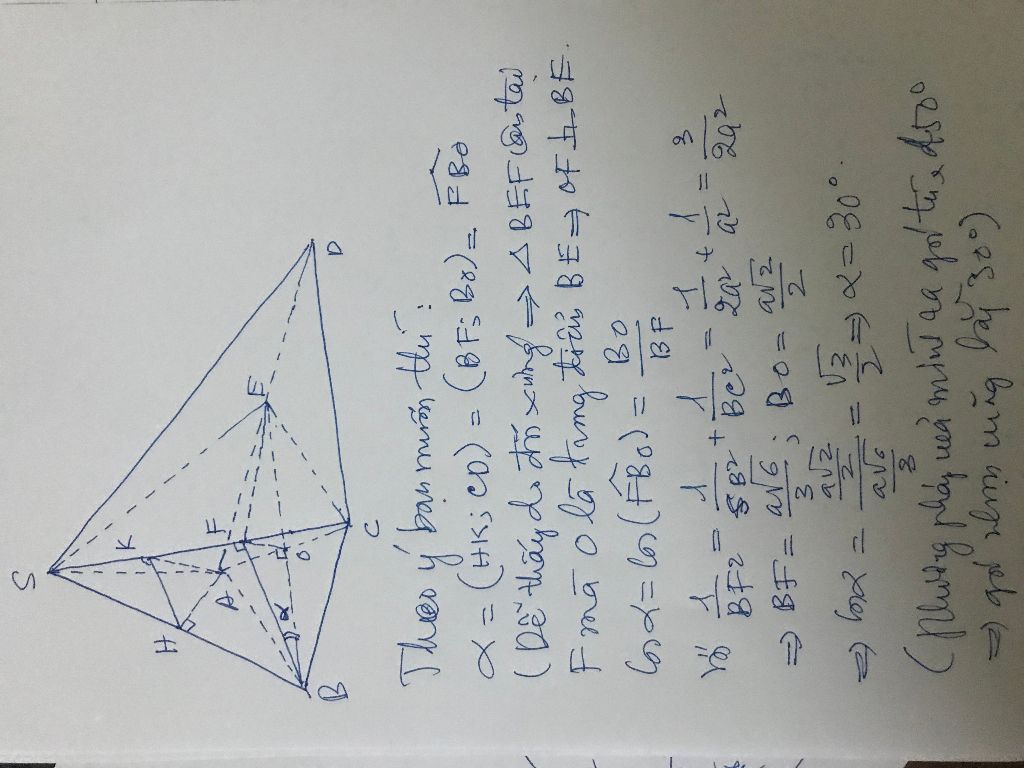 S
K
H
A
F
E
D
H
O
α
B
C
Theo ý bạn muốn thì:
α = (HK; CD) = (BF; BO) = FBO
(Dễ thấy do đối xứng ⇒ Δ BEF cân tại
F mà O là trung điểm BE ⇒ OF ⊥ BE.
Cos α = Cos (FBO) = BO/BF
Với 1/BF² = 1/SB² + 1/BC² = 1/2a² + 1/a² = 3/2a²
⇒ BF = a√6/3 ; BO = a√2/2
⇒ Cosα = (a√2/2)/(a√6/3) = √3/2 ⇒ α = 30°.
(Phương pháp mình góc tù 150°
⇒ góc nhọn cũng bằng 30°)